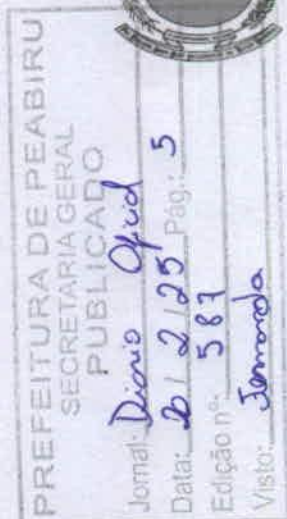 PREFEITURA DE PEABIRU
SECRETARIA GERAL
PUBLICADO
Jornal: Diario Oficial
Data: 20 / 2 / 25 Pág.: 5
Edição nº. 587
Visto: Fernanda